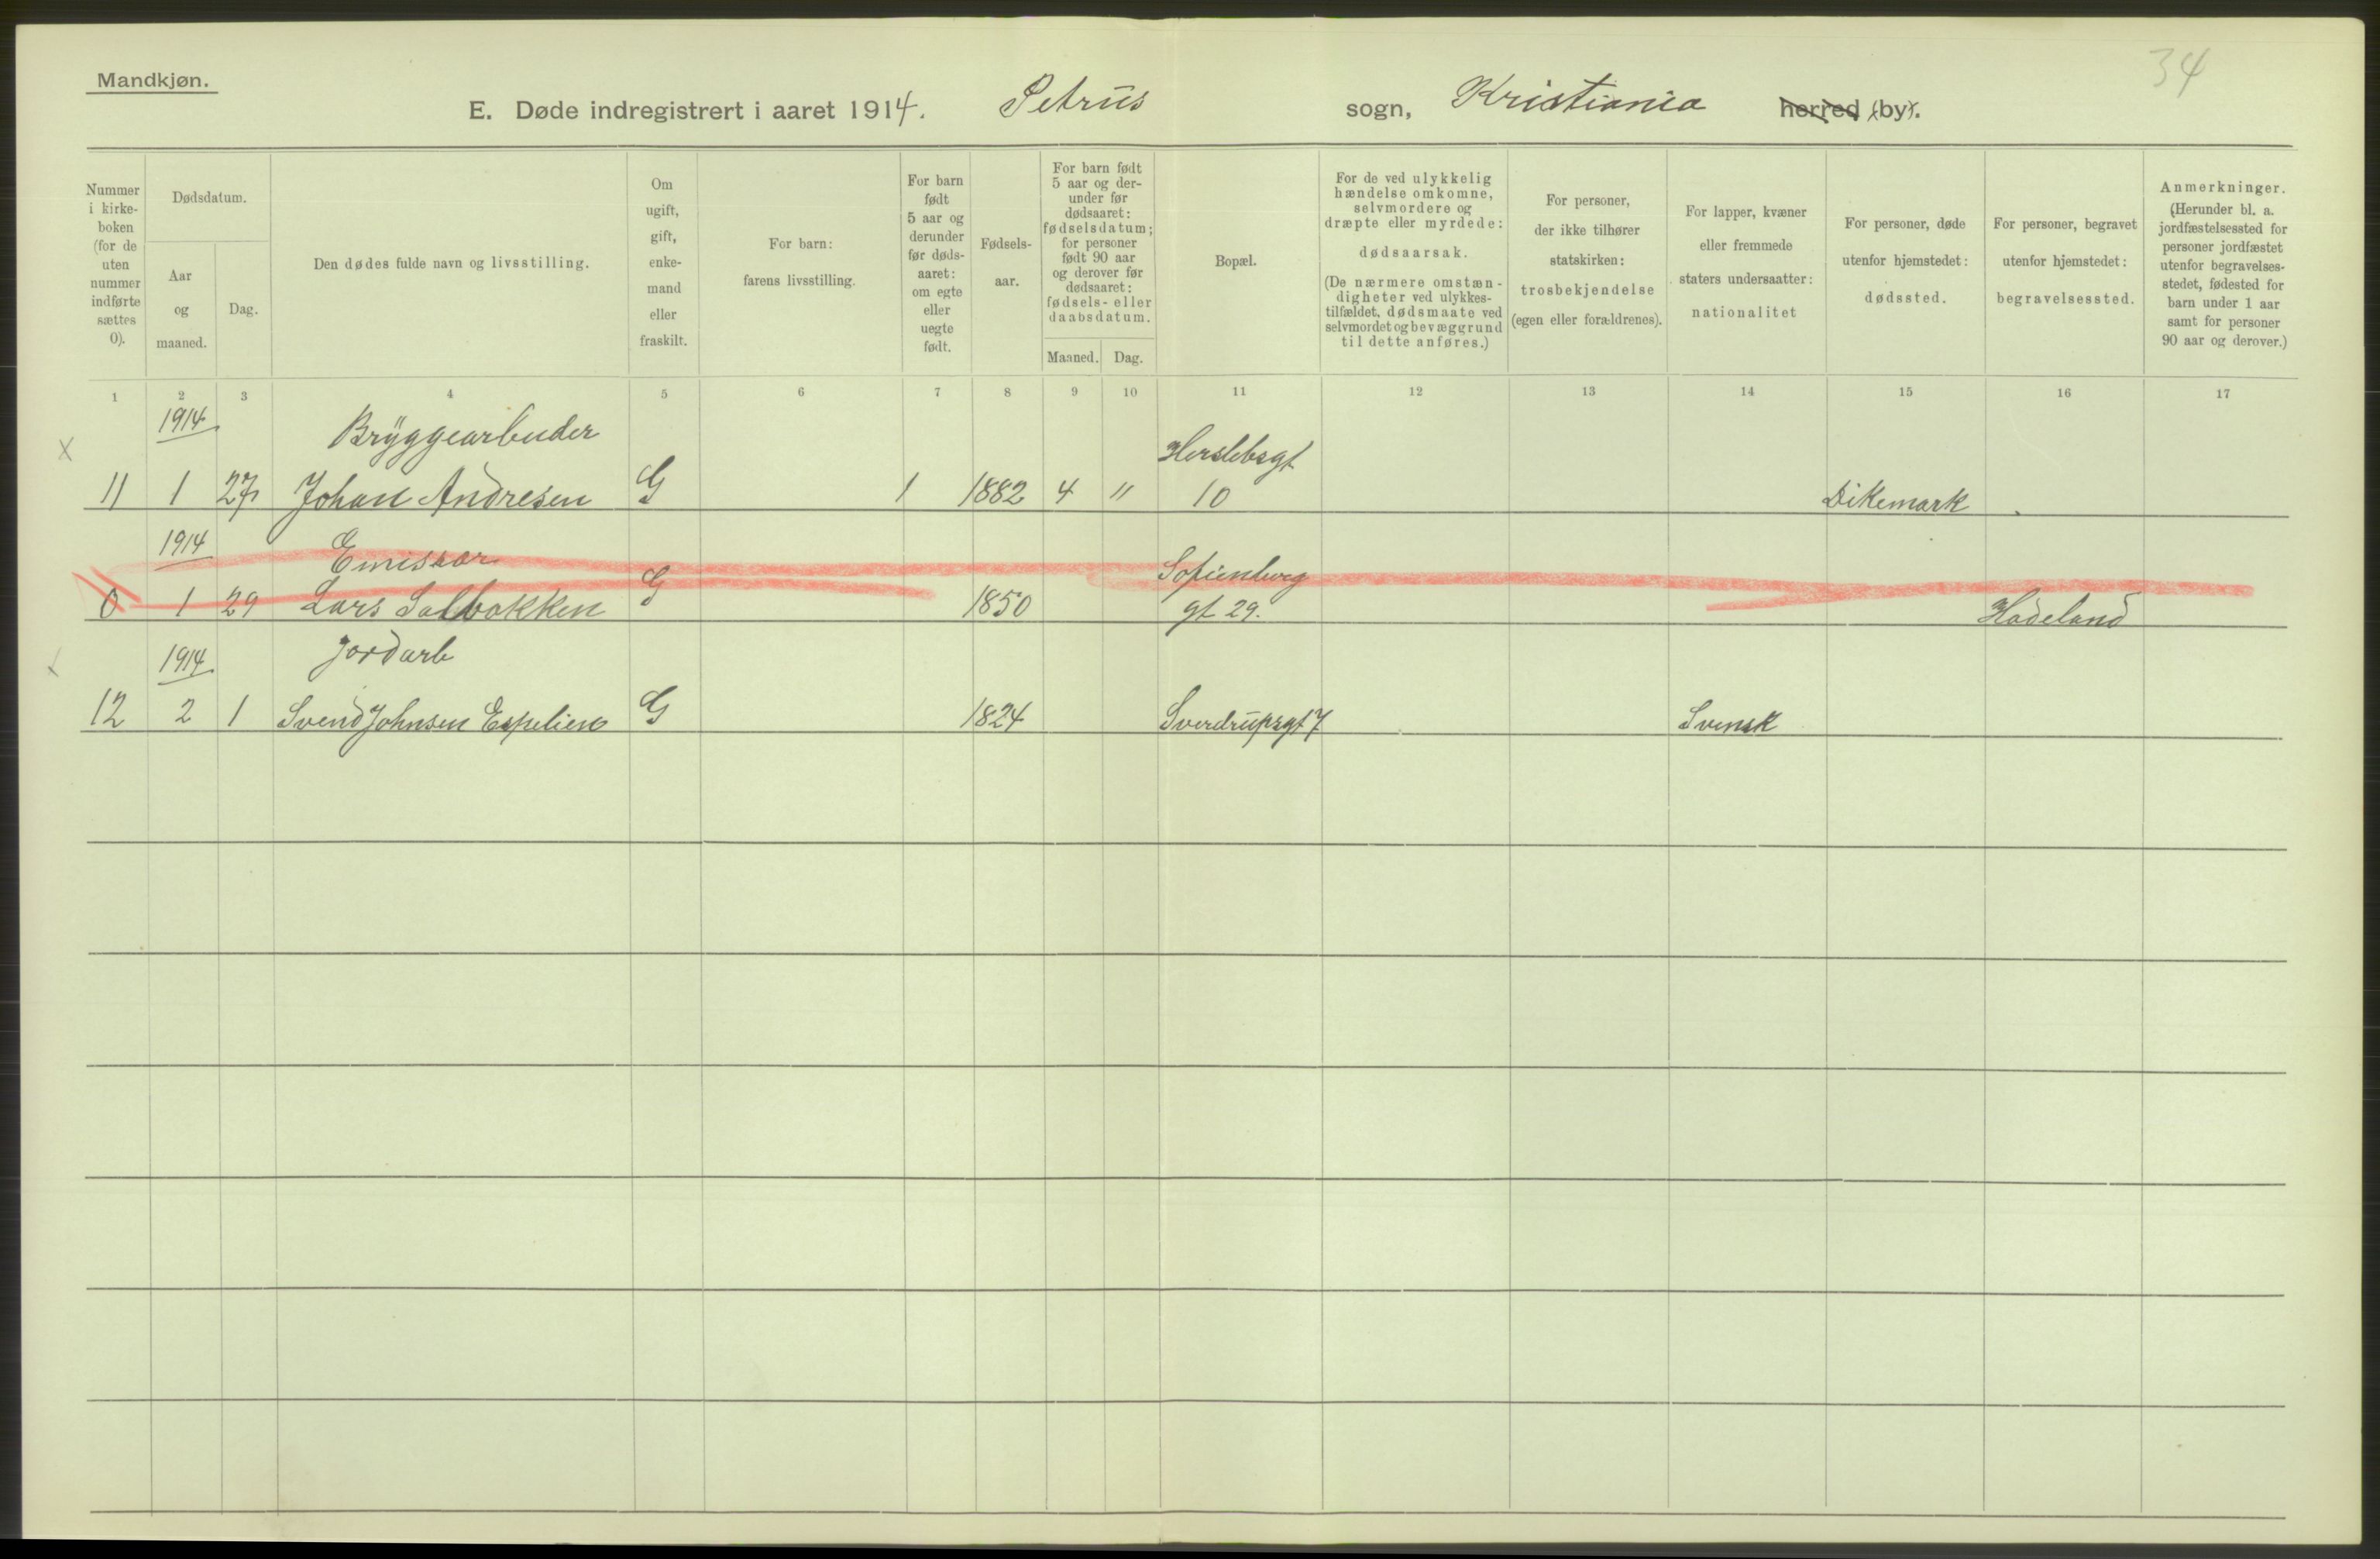 34
Mandkjøn.
E. Døde indregistrert i aaret 1914. Petrus sogn, Kristiania herred (by).
Nummer i kirke- boken (for de uten nummer indførte sættes 0).
Dødsdatum.
Aar og maaned.
Dag.
Den dødes fulde navn og livsstilling.
Om ugift, gift, enke- mand eller fraskilt.
For barn: farens livsstilling.
For barn født 5 aar og derunder før døds- aaret: om egte eller uegte født.
Fødsels- aar.
For barn født 5 aar og der- under før dødsaaret: fødselsdatum; for personer født 90 aar og derover før dødsaaret: fødsels- eller daabsdatum.
Maaned. Dag.
Bopæl.
For de ved ulykkelig hændelse omkomne, selvmordere og dræpte eller myrdede: dødsaarsak. (De nærmere omstæn- digheter ved ulykkes- tilfældet, dødsmaate ved selvmordet og bevæggrund til dette anføres.)
For personer, der ikke tilhører statskirken: trosbekjendelse (egen eller forældrenes).
For lapper, kvæner eller fremmede staters undersaatter: nationalitet
For personer, døde utenfor hjemstedet: dødssted.
For personer, begravet utenfor hjemstedet: begravelsessted.
Anmerkninger. (Herunder bl. a. jordfæstelsessted for personer jordfæstet utenfor begravelses- stedet, fødested for barn under 1 aar samt for personer 90 aar og derover.)
1 2 3 4 5 6 7 8 9 10 11 12 13 14 15 16 17
1914 Bryggearbeider Herslebsgt
x
11 1 27 Johan Andresen G 1 1882 4 " 10 Dikemark
1914 Emissær Sofienberg
0 1 29 Lars Solbakken G 1850 gt 29. Hadeland
1914 Jordarb
12 2 1 Svend Johnsen Espelien G 1824 Sverdrupsgt 7 Svensk